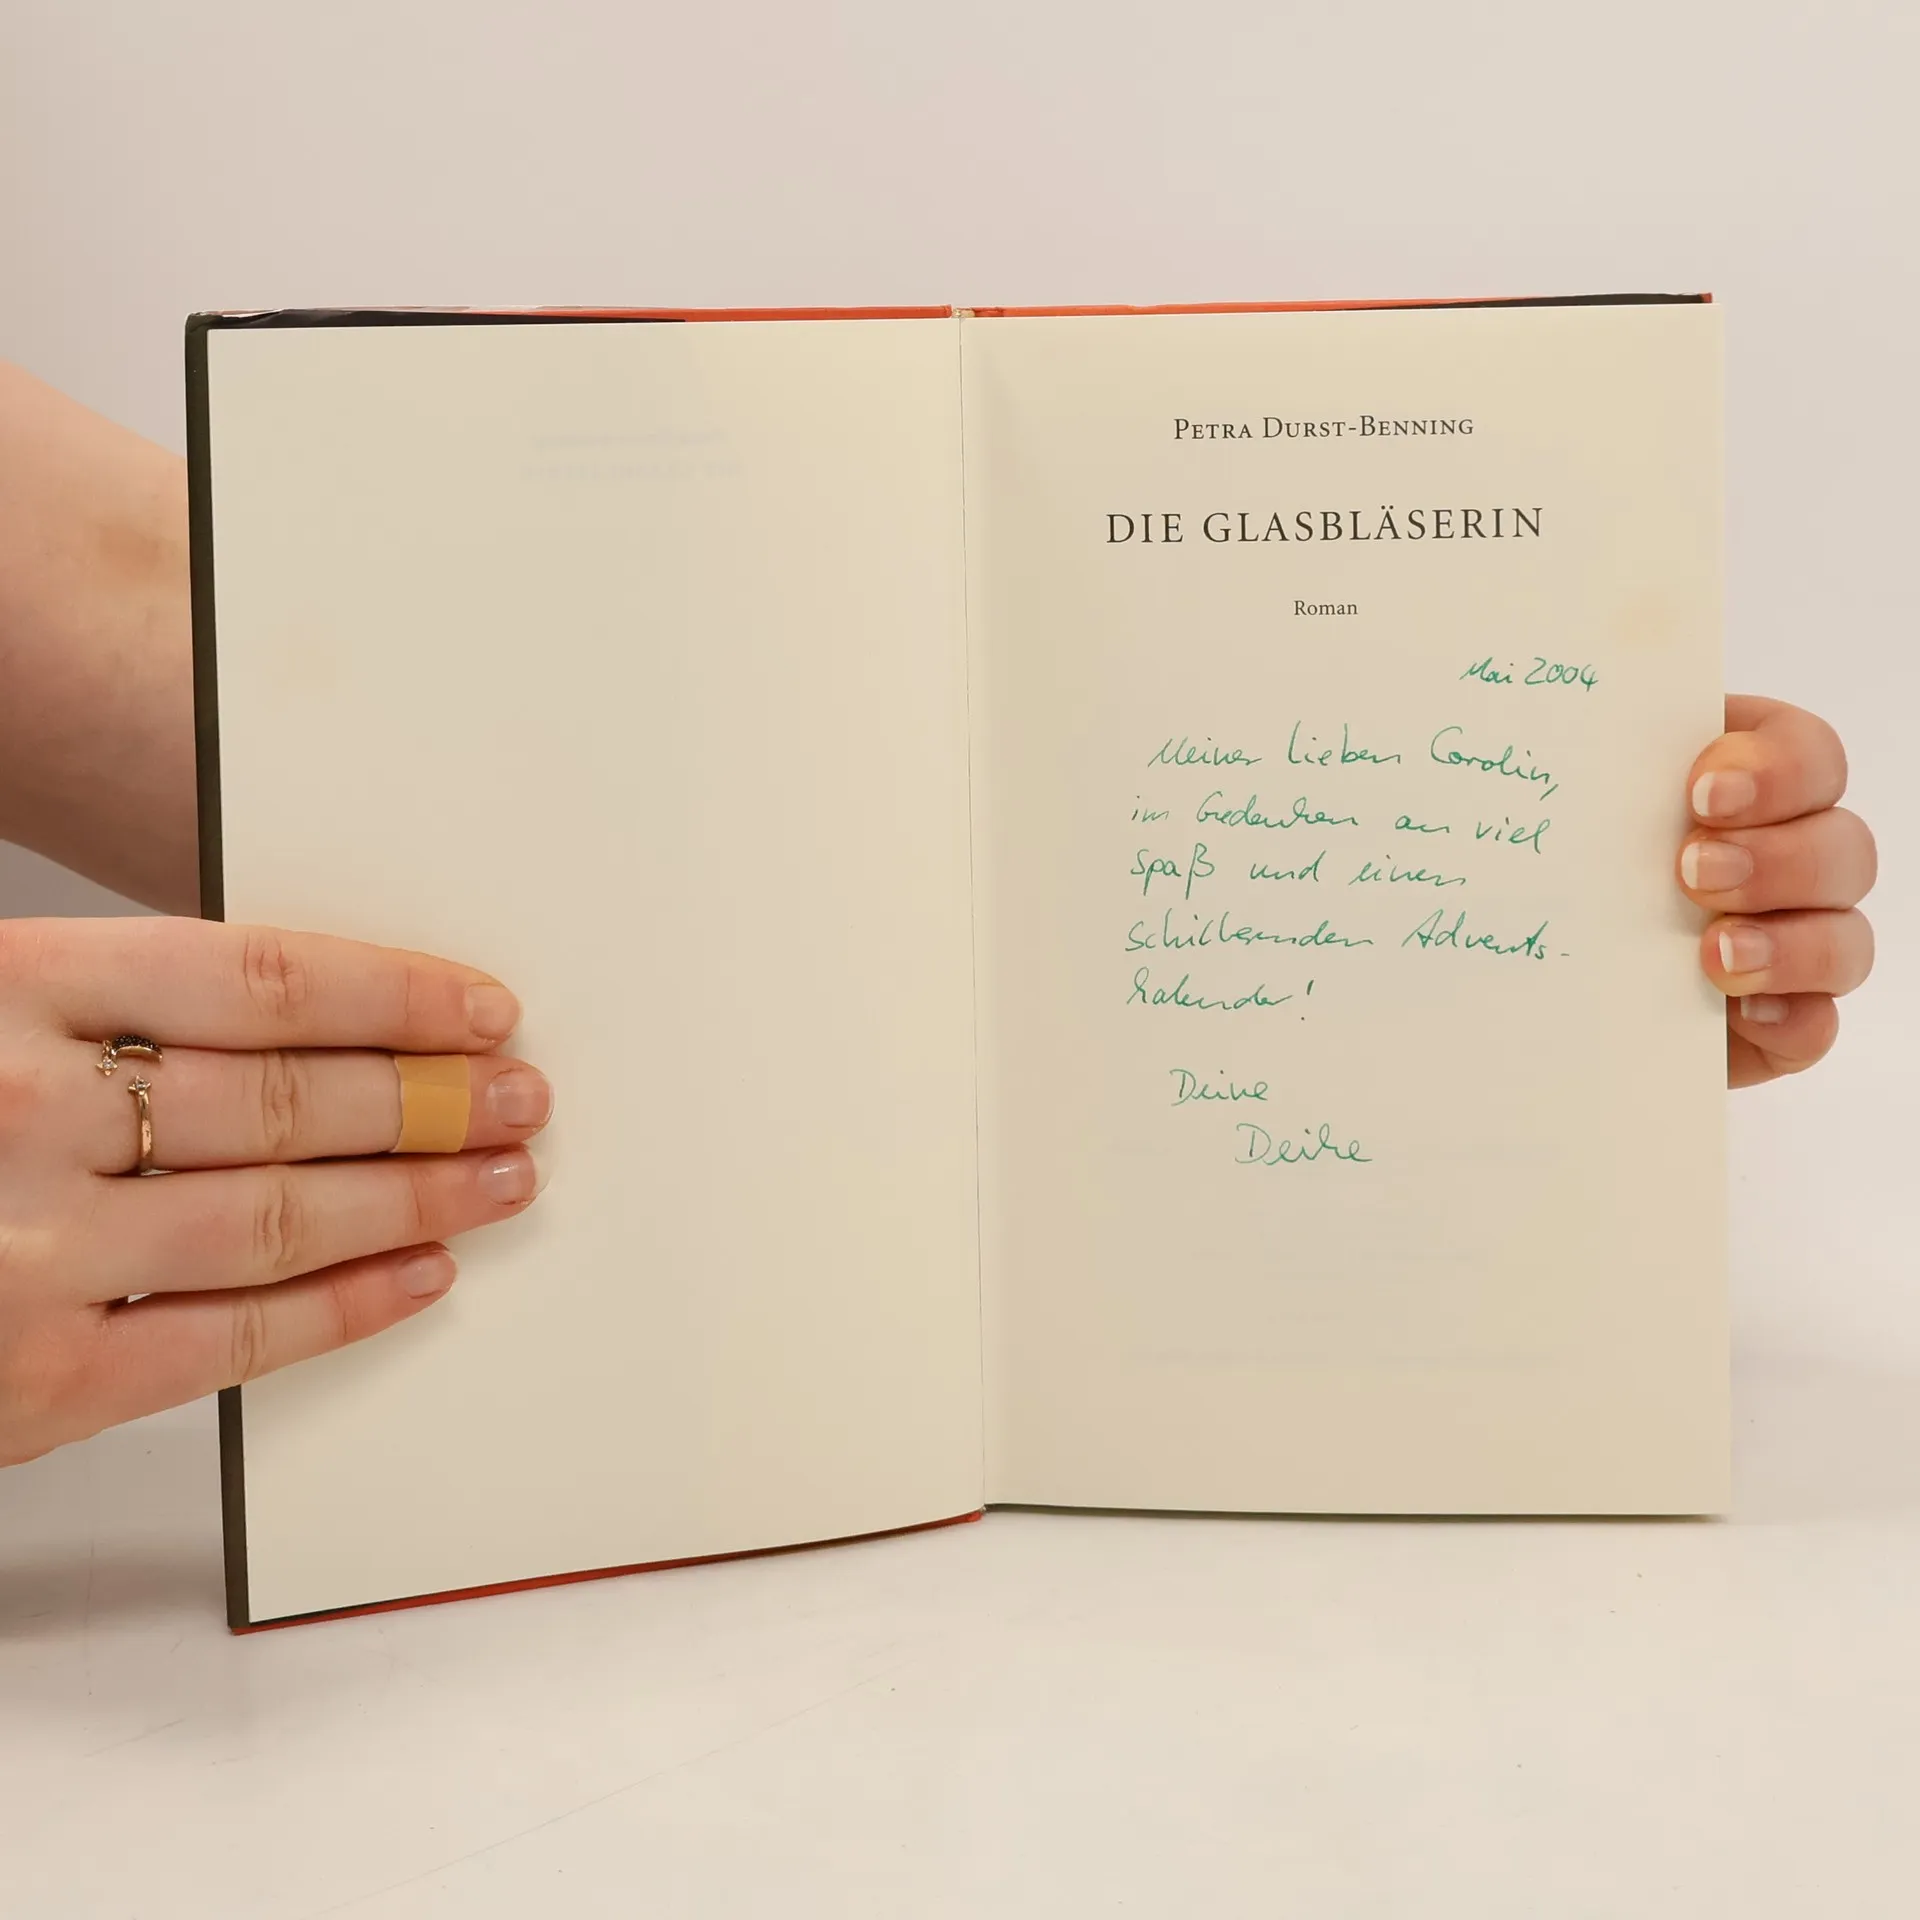 PETRA DURST-BENNING
DIE GLASBLÄSERIN
Roman
Mai 2004
Meiner lieben Carolin,
im Gedenken an viel
Spaß und einen
schillernden Advents-
kalender!
Deine
Deike